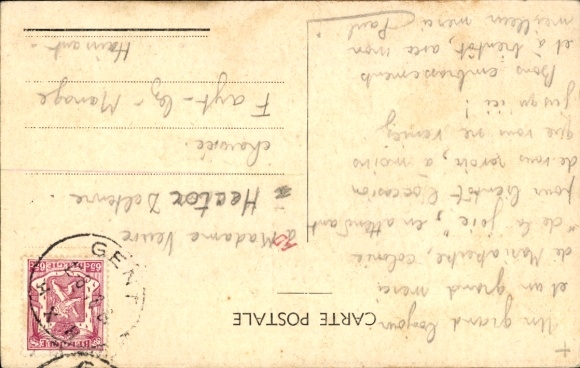 CARTE POSTALE
Un grand bonjour
et un grand merci
de Mariakerke, colonie
"de la joie", en attendant
pour bientôt l'occasion
de vous revoir, à moins
que vous ne veniez
jusqu'ici!
Bons embrassements
et à bientôt, avec mon
meilleur merci
Paul
GENT
BELGIE
65c
à Madame Veuve
Hector Delterre
chaussée
Fayt-lez-Manage
Hainaut.